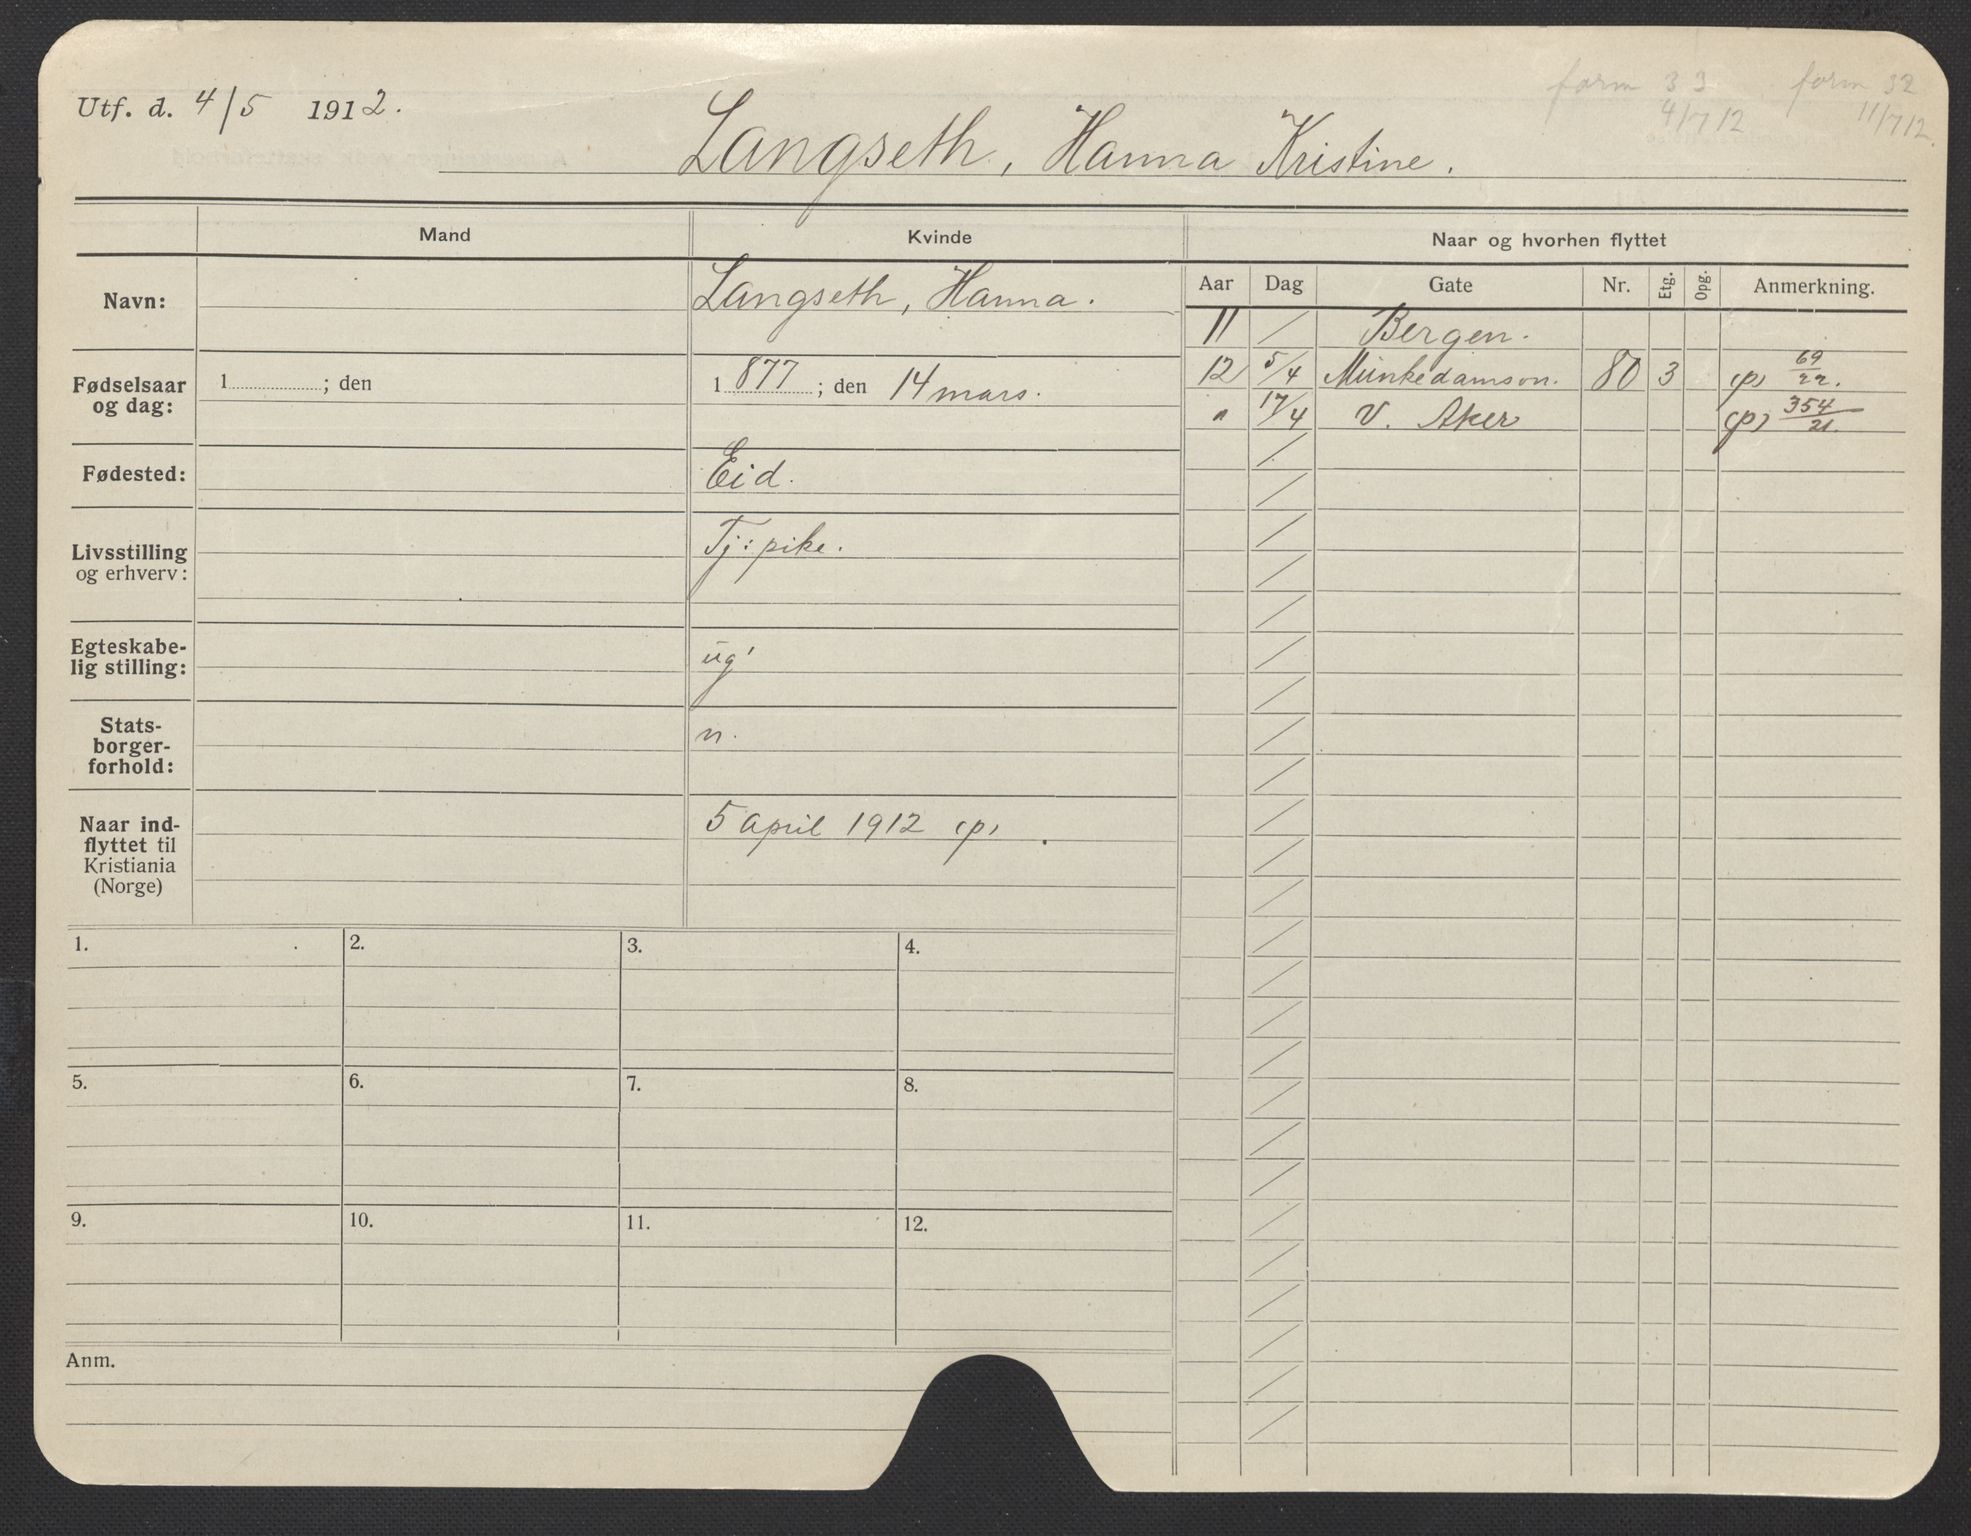 form 33 form 32
Utf. d. 4/5 1912. 4/7 12 11/7 12
Langseth, Hanna Kristine.
Mand Kvinde Naar og hvorhen flyttet
Aar Dag Gate Nr. Etg. Opg. Anmerkning.
Navn: Langseth, Hanna.
11 / Bergen.
12 5/4 Munkedamsvn. 80 3 (p) 69/22.
" 17/4 V. Aker (p) 354/21.
Fødselsaar
og dag:
1 ; den 1 877 ; den 14 mars.
Fødested: Eid.
Livsstilling
og erhverv: Tj: pike.
Egteskabe-
lig stilling: ug'
Stats-
borger-
forhold: n.
Naar ind-
flyttet til
Kristiania
(Norge)
5 april 1912 (p) .
1. 2. 3. 4.
5. 6. 7. 8.
9. 10. 11. 12.
Anm.